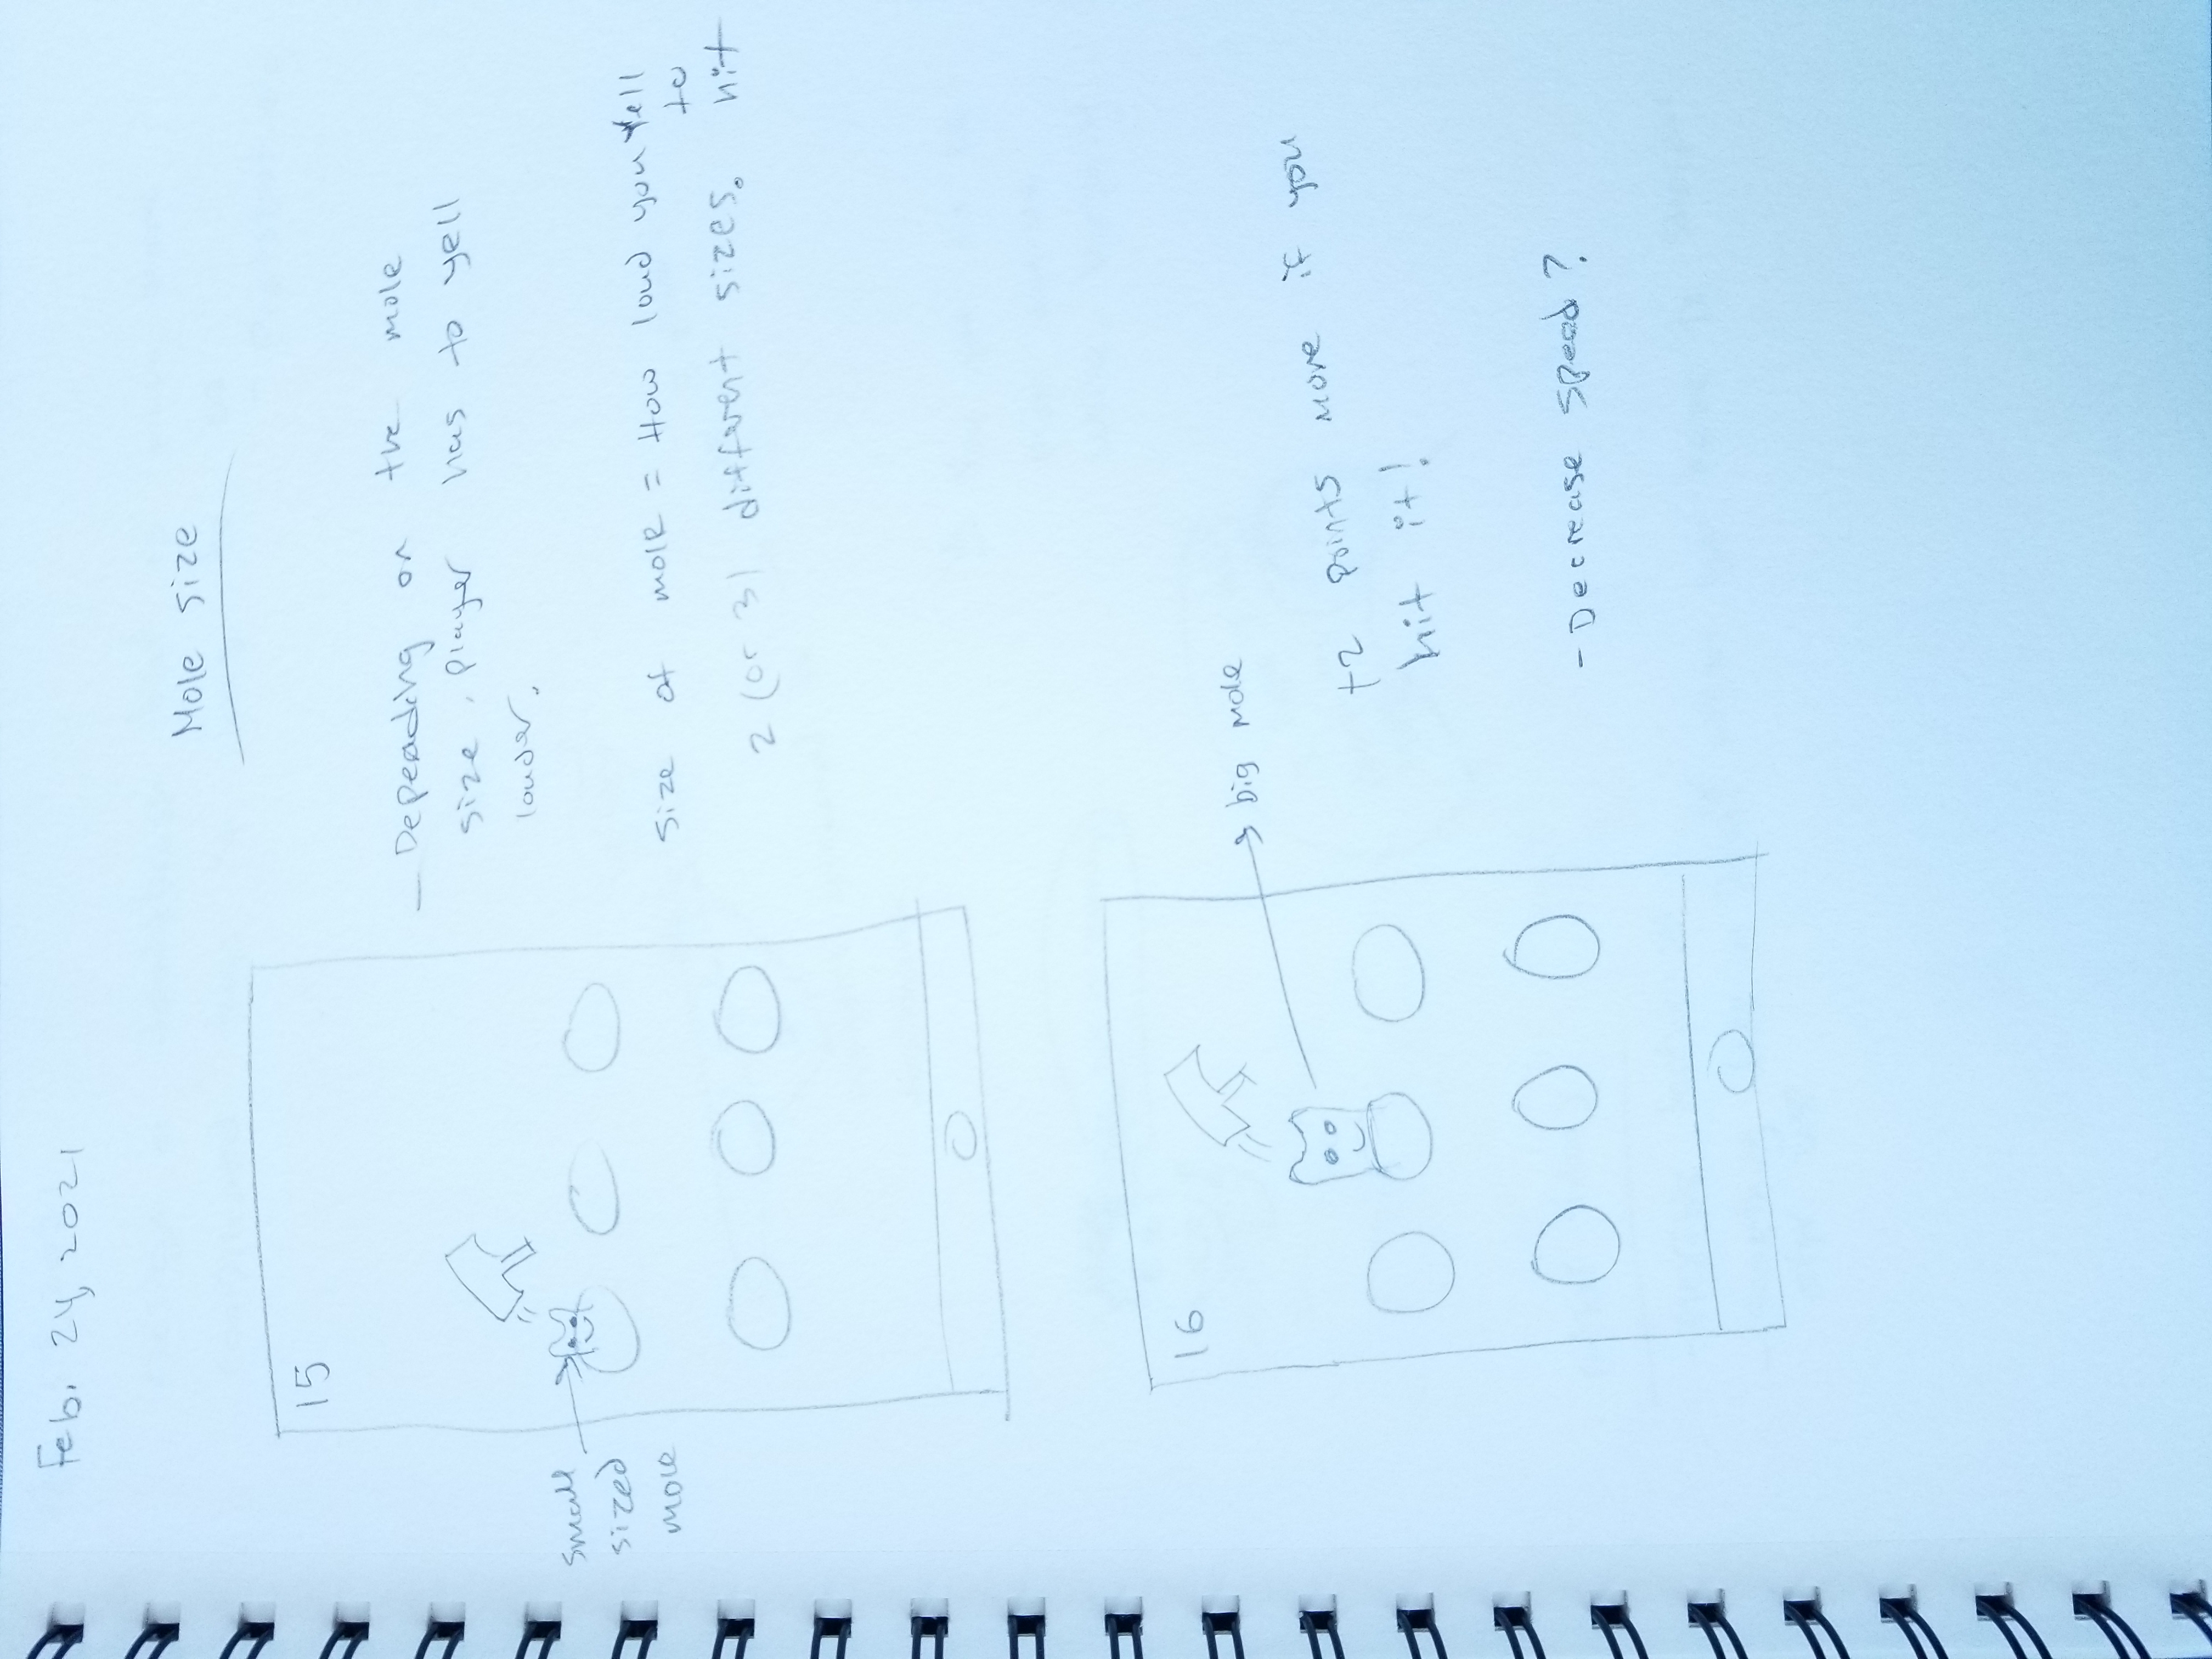 Feb. 24, 2021
Mole size
15
- Depending on the mole
size, player has to yell
louder.
small
sized
mole
size of mole = How loud you Yell
to
hit
2 (or 3) different sizes.
16
big mole
+2 points more if you
hit it!
- Decrease speed?